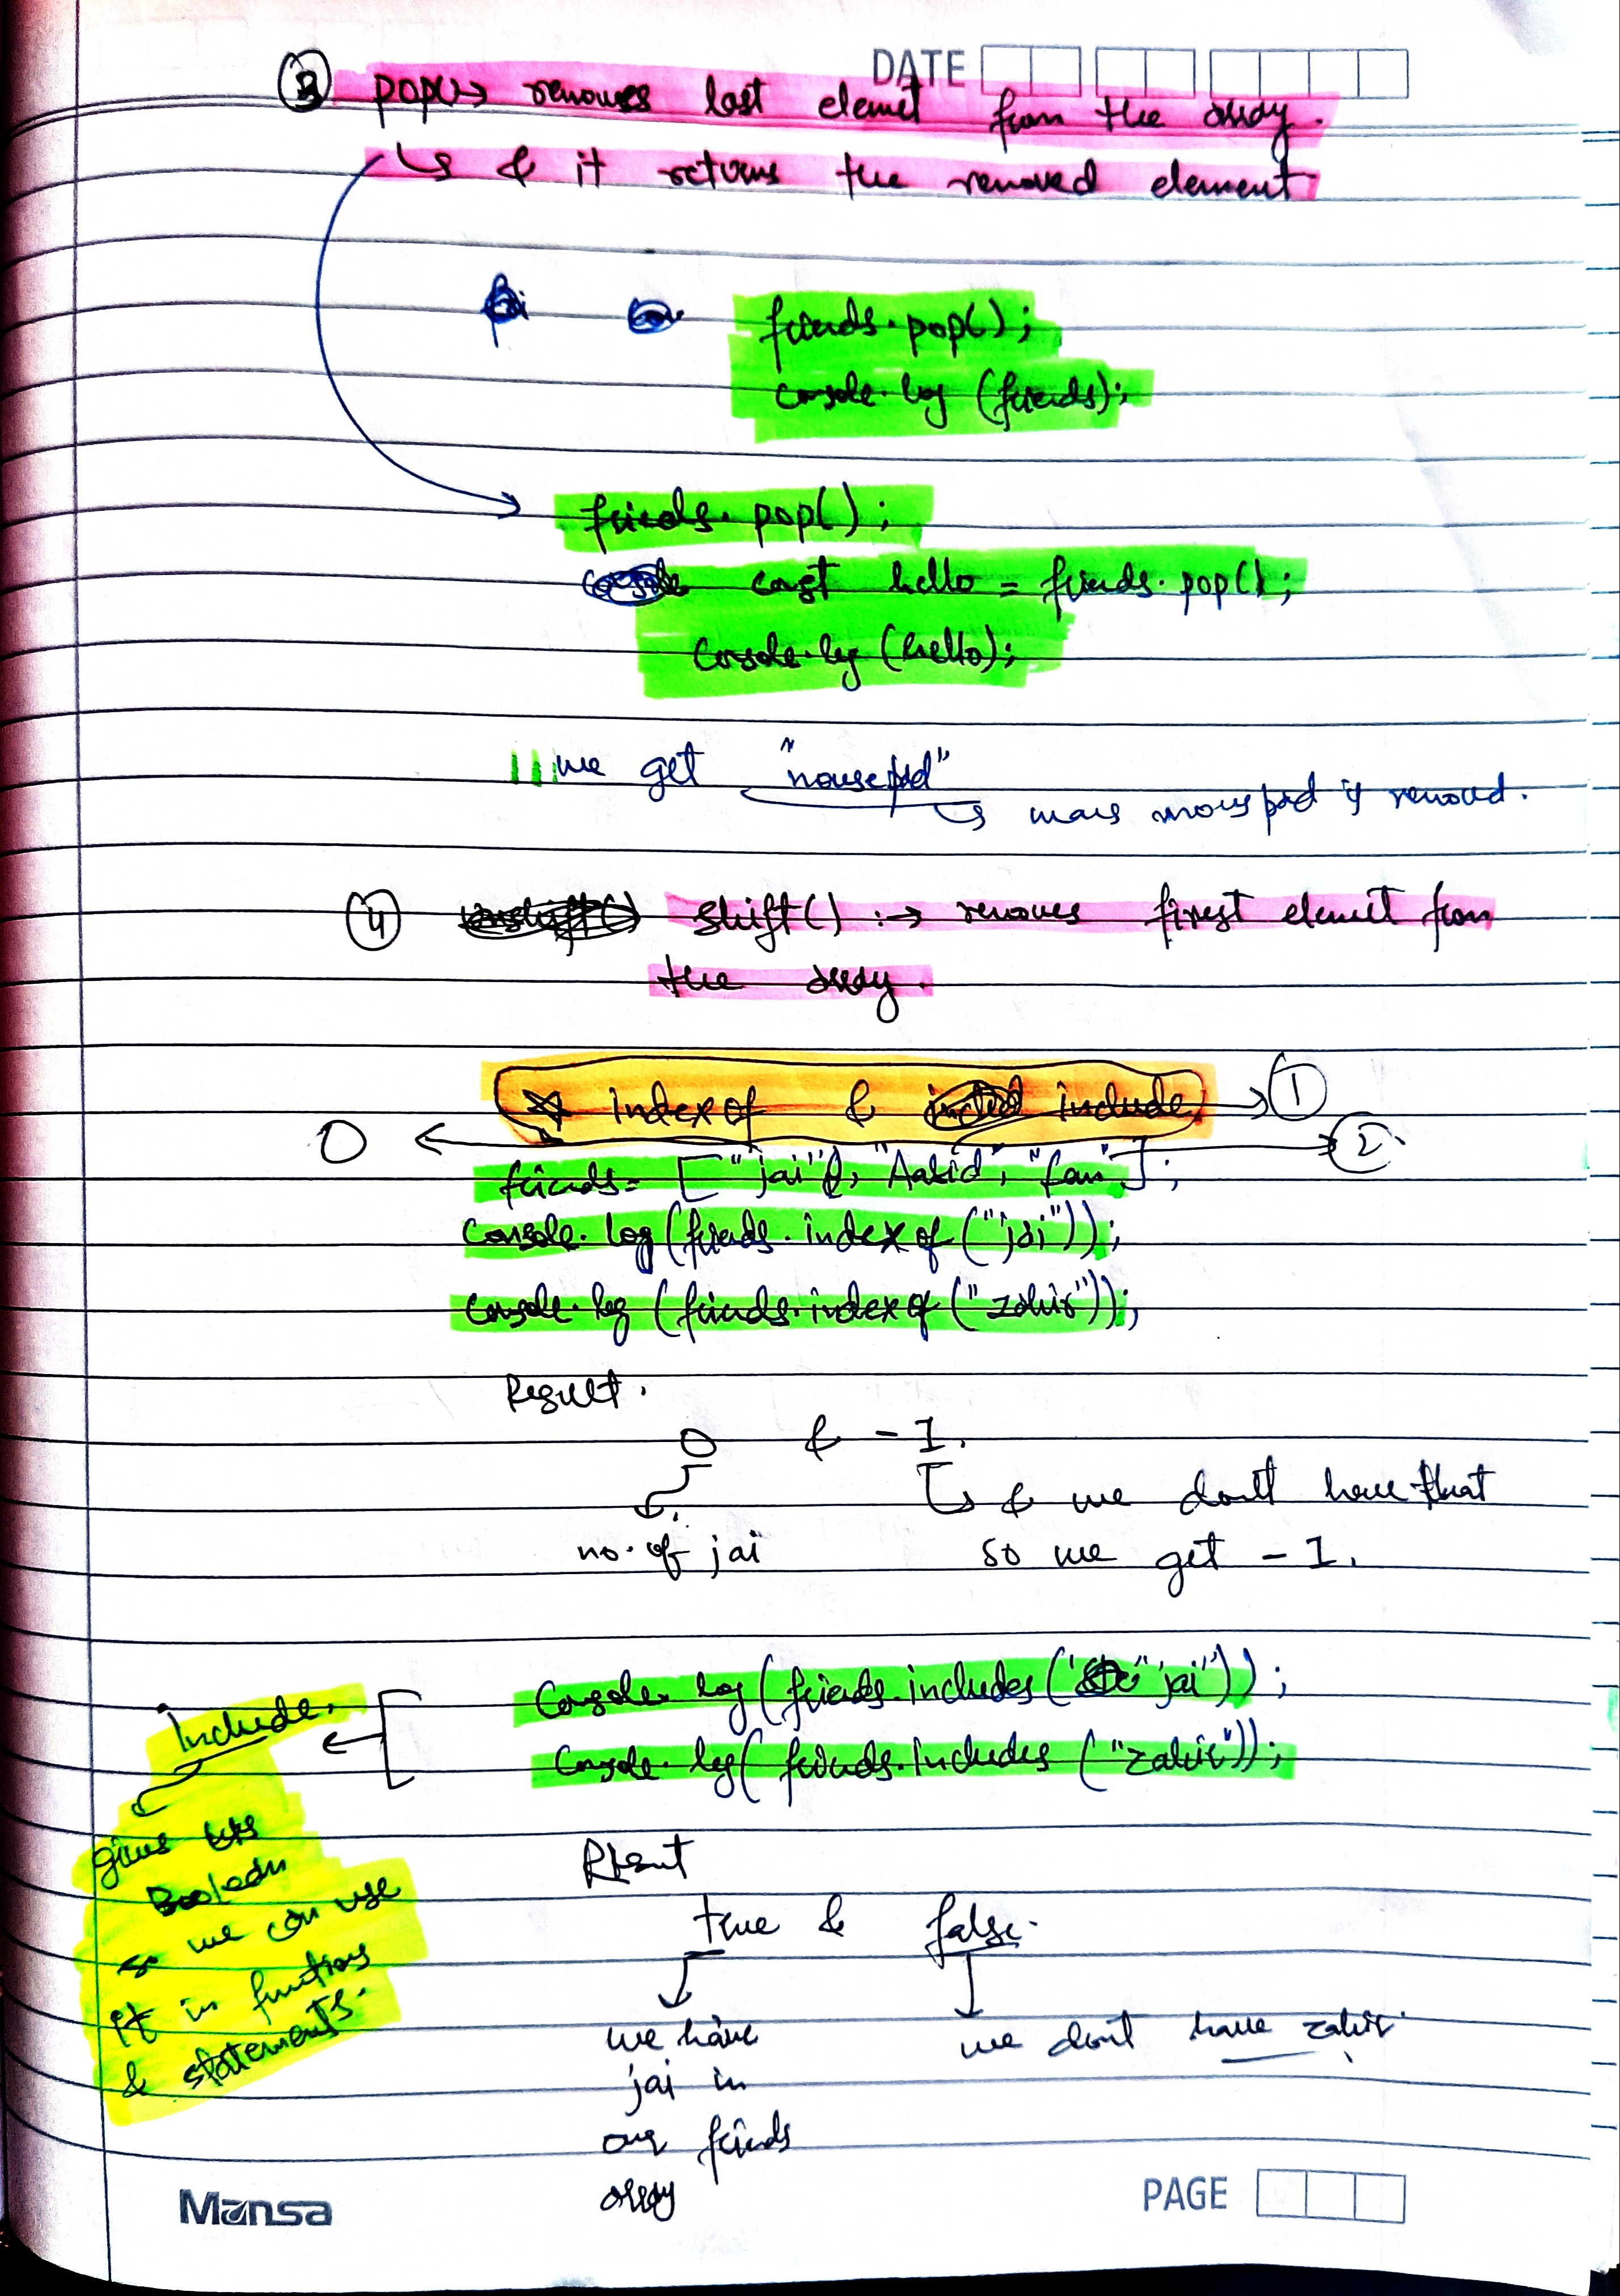 DATE
③ pop() → removes last elemet from the array.
↳ & it returns the removed element
friends.pop();
console.log (friends);
friends.pop();
const hello = friends.pop();
console.log (hello);
// we get "mousepad"
↳ mans mouspad is removed.
④ shift() :→ removes first elemet from
the array.
☆ index of & include → ①
0 ← → ②
friends = ["jai", "Aakid", "fan"];
console.log(friends.index of ("jai"));
console.log (friends.index of ("zahir"));
Result.
0 & -1.
↳ & we don't have that
no. of jai so we get -1.
Console.log (friends.includes ("jai"));
Include. ←
Console.log( friends.includes ("zahir"));
gives us
Boolean
so we can use
it in functions
& statements.
Result
true & false.
we have
jai in
our friends
array
we don't have zahir.
Mansa
PAGE